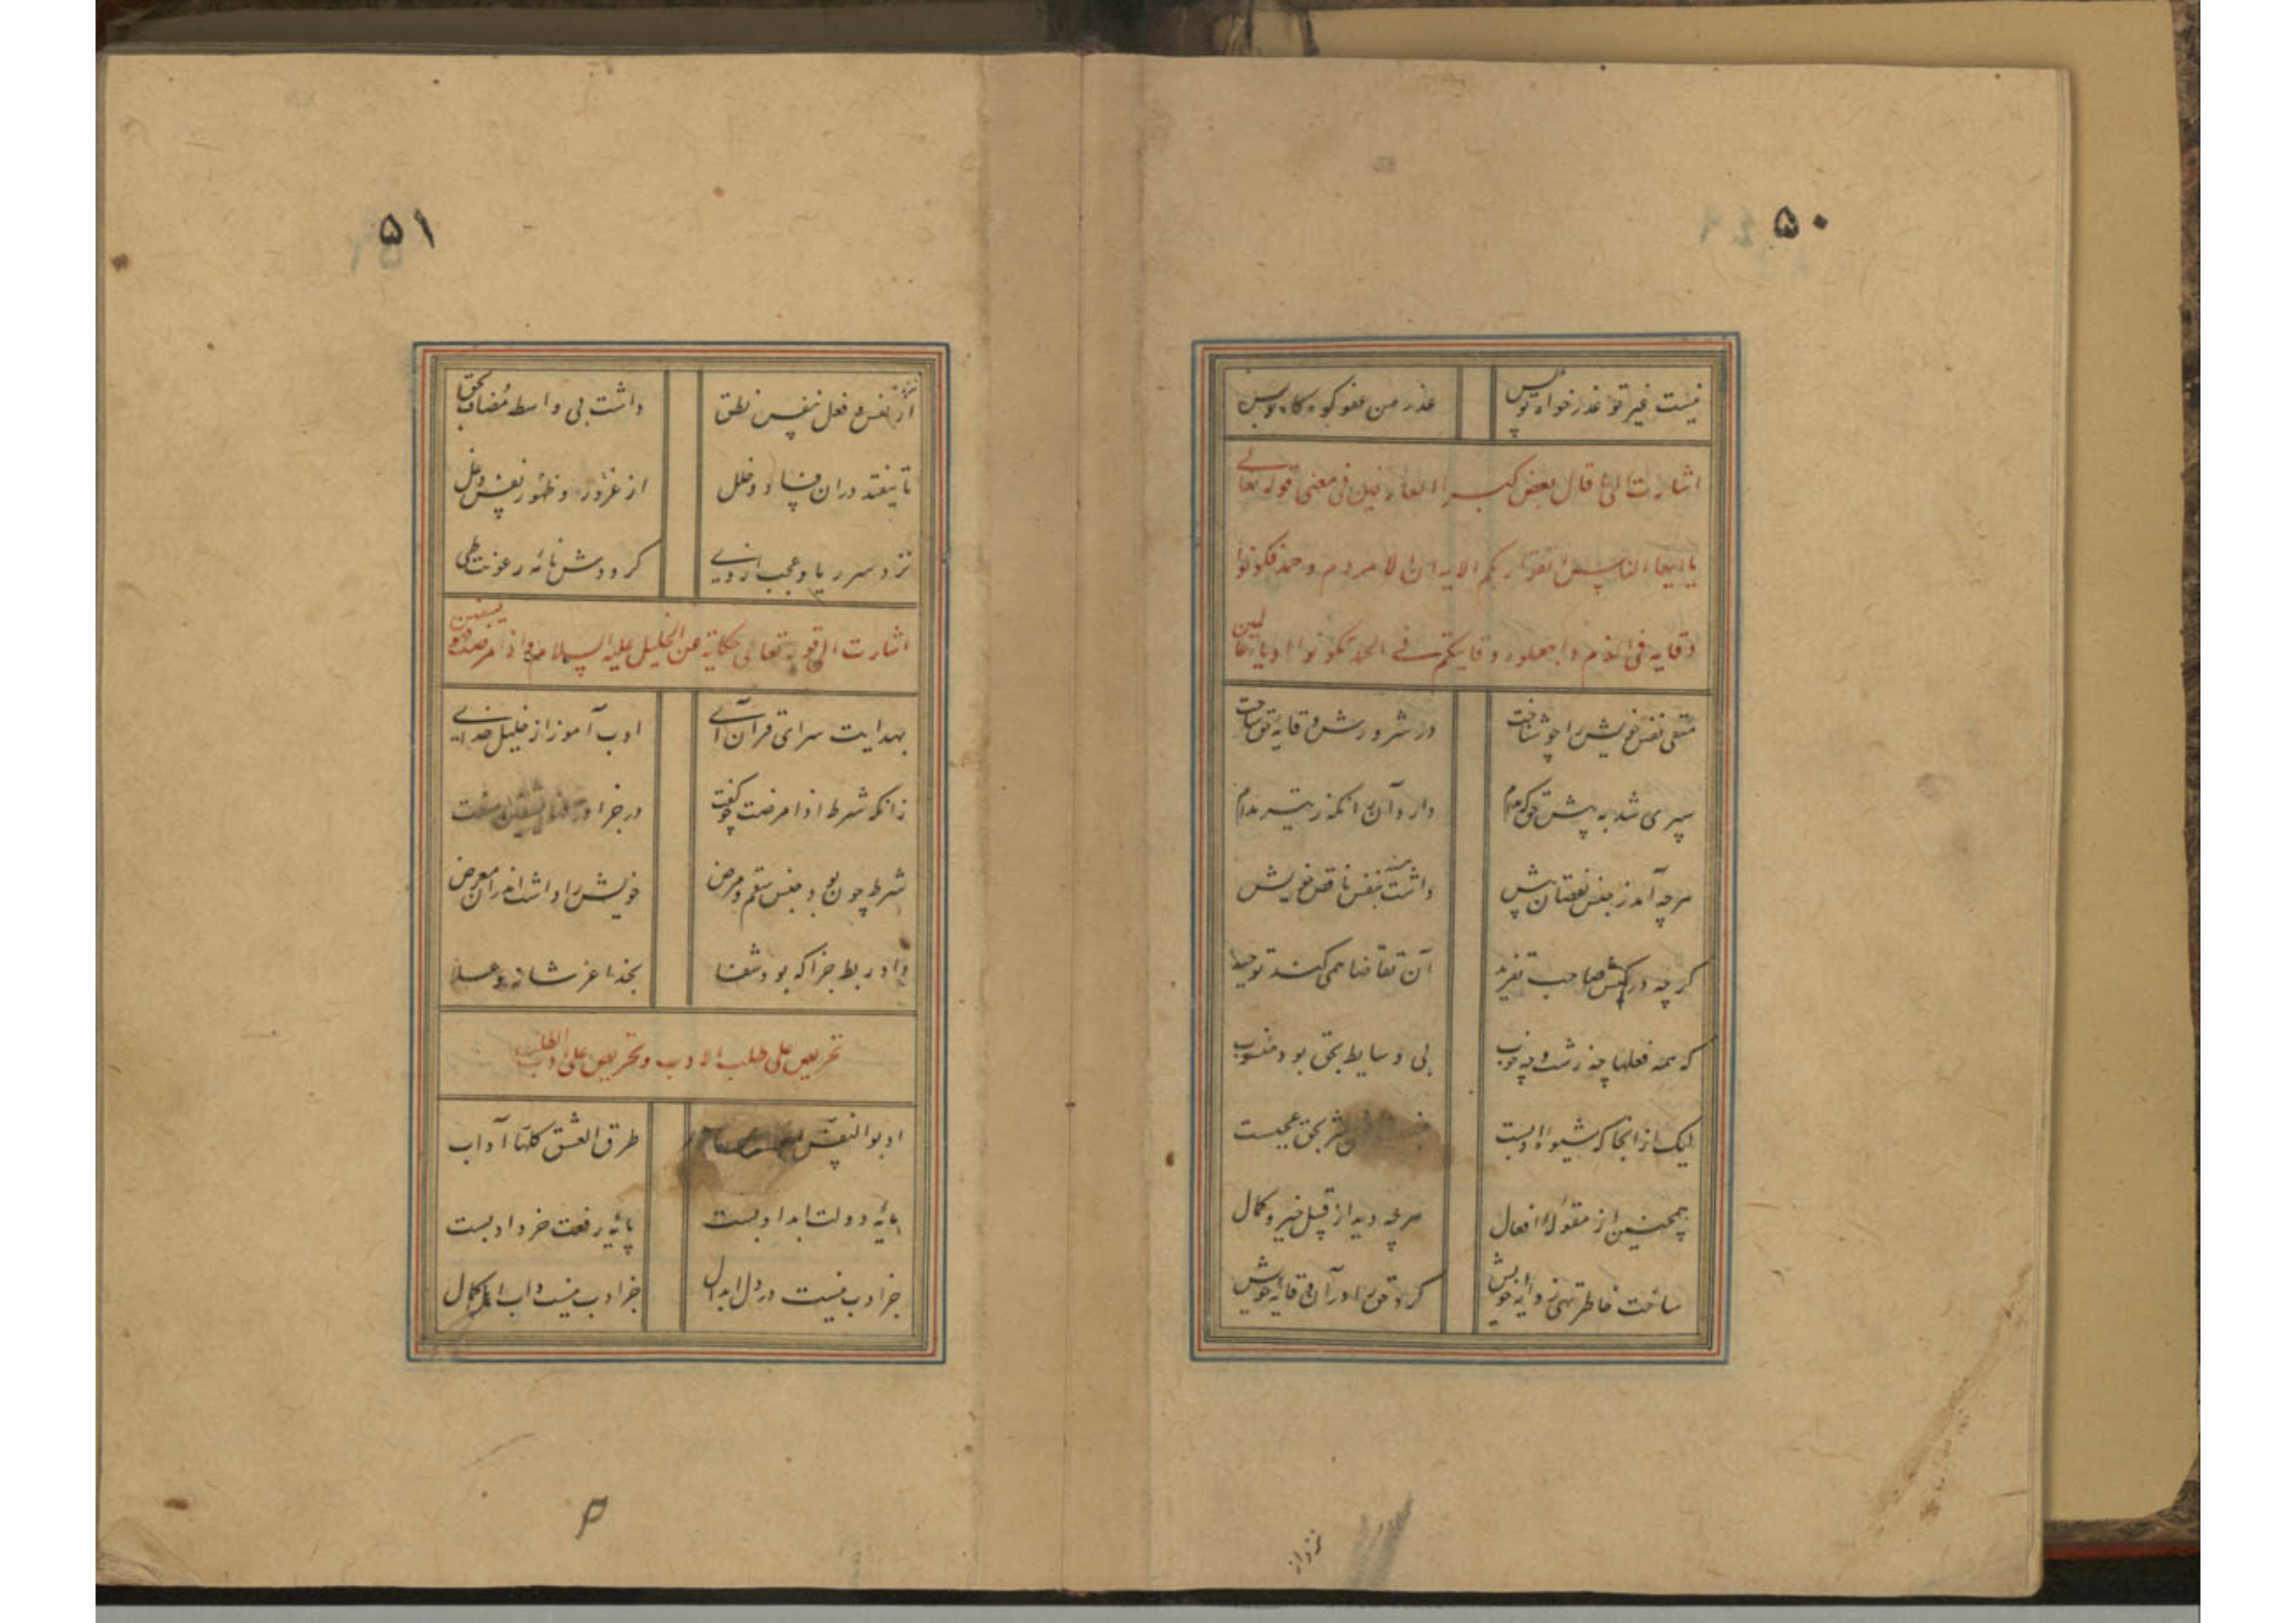 ۵۰
نیست غیر تو عذرخواه تو پس عذر من عفو کو
اشارت الی ما قال بعض کبراا العارفین فی معنی قوله تعالی
یا ایها الناس اتقوا ربکم
وقایه فی الذم واجعلوه وقایتکم فی الحمد تکونوا ادباء عالمین
متقی نفس خویش را چو شناخت در شرورش وقایهٔ حق ساخت
سپری شد به پیش حق که مدام دارد آن را نکه ز تیر ندام
هرچه آمد ز جنس نقصان پیش داشت بنفس ناقص خویش
کرچه در کیش صاحب تفرید آن تقاضا همی کند توحید
که همه فعلها چه زشت و چه خوب بی وسایط بحق بود منسوب
لیک از انجا که شیوهٔ ادبست شر بحق عجبست
همچنین از مقولهٔ افعال هرچه دید از قبیل خیر و کمال
ساخت خاطر تهی ز وایهٔ خویش کرد حق را در آن وقایهٔ خویش
نزد از
۵۱
از نفس و فعل نفس نطق داشت بی واسطه مضاف بحق
تا نیفتد در ان فساد و خلل از غرور و ظهور نفس دغل
نزد سر ریا و عجب از وی کرد دش نامهٔ رعونت طی
اشارت الی قوله تعالی حکایة عن الخلیل علیه السلام و اذا مرضت فهو یشفین
بهدایت سرای قرآن آی ادب آموز از خلیل خدای
زانکه شرط اذا مرضت چو کفت در جزا یشفین سفت
شرط چون بود جنس سقم و مرض خویش را داشت اندر ان معرض
داد ربط جزا که بود شفا بخدا عز شانه و علا
تحریص علی طلب الادب و تحریص علی ادب الطلب
ادبوا النفس طرق العشق کلها آداب
مایهٔ دولت ابد ادبست پایهٔ رفعت خرد ادبست
جز ادب نیست در دل ابدال جز ادب نیست داب اهل کمال